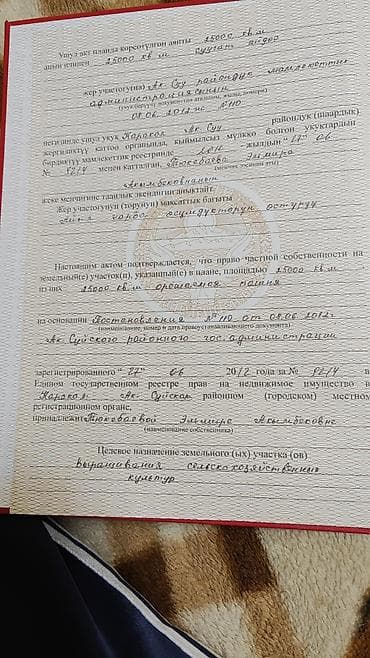 Ушул акт планда көрсөтүлгөн аянты 25000 кв.м
анын ичинен 25000 кв м сугат айдоо
жер участогу(на) Ак Суу райондук мамлекеттик
администрациянын
(укук берүүчү документтин аталышы, күнү, номери)
08.06. 2012 ж №110
негизинде ушул укук Каракол Ак Суу райондук (шаардык)
жергиликтүү каттоо органында, кыймылсыз мүлккө болгон укуктардын
бирдиктүү мамлекеттик реестринде 2012 - жылдын "27" 06
№ 82/4 менен катталган, Тюкебаева Эльмира
(менчик ээсинин аты)
Акымбековнанын
жеке менчигине таандык экендиги аныктайт.
Жер участогунун (торунун) максаттык багыты
Айыл чарба өсүмдүктөрүн өстүрүү
Настоящим актом подтверждается, что право частной собственности на
земельный(е) участок(и), указанный(е) в плане, площадью 25000 кв.м
из них 25000 кв.м орошаемая пашня
на основании Постановления №110 от 08.06 2012г
(наименование, номер и дата правоустанавливающего документа)
Ак Суйского районного гос. администрации
зарегистрированного "27" 06 2012 года за № 82/4 в
Едином государственном реестре прав на недвижимое имущество в
Каракол Ак-Суйском районном (городском) местном
регистрационном органе,
принадлежит Тюкебаевой Эльмире Акымбековне
(наименование собственника)
Целевое назначение земельного (ых) участка (ов)
выращивания сельскохозяйственных
культур